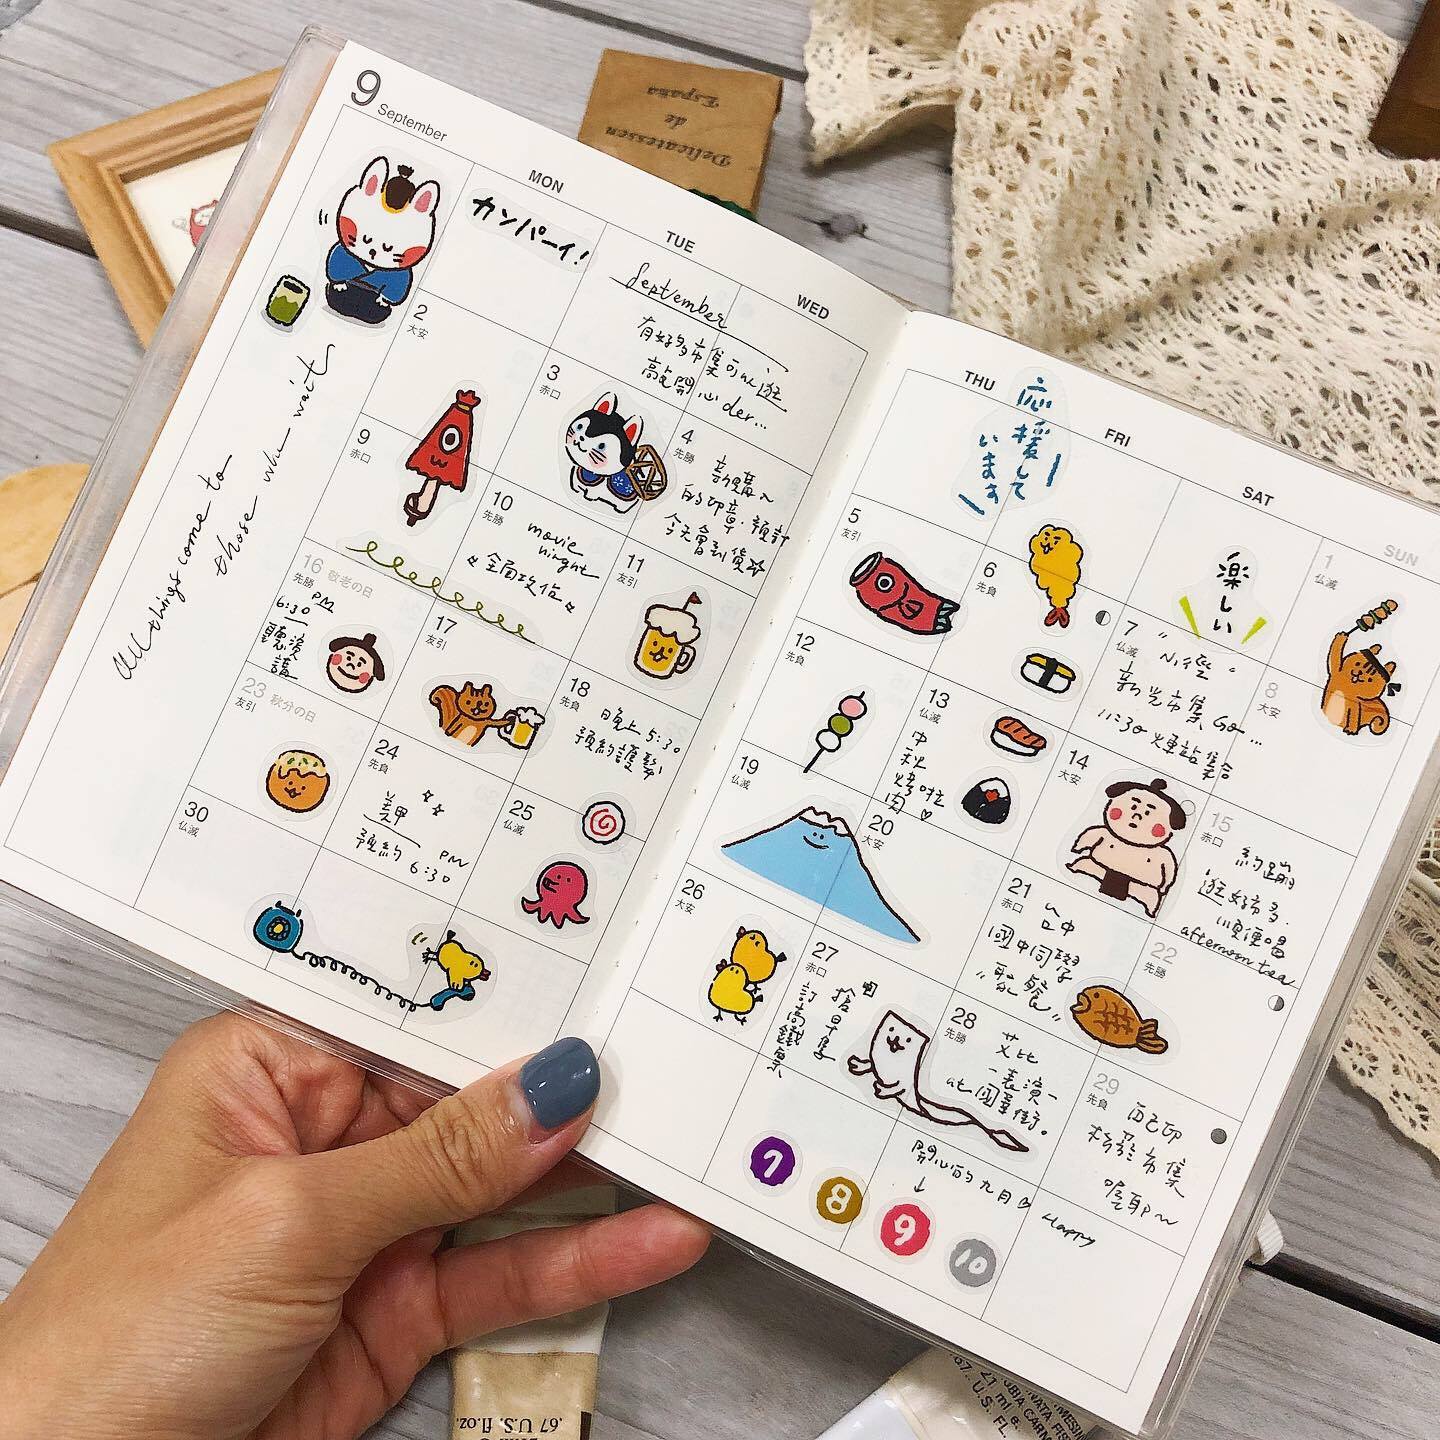 9
September
MON
TUE
WED
THU
FRI
SAT
SUN
カンパーイ!
September
有好多市集可以逛
高起開心der...
応援して
いまーす
楽しい
1
仏滅
2
大安
3
赤口
4
先勝
新購~
的印章.預計
今天會到貨☆
5
友引
6
先負
7
仏滅
"小徑"
新光市集Go...
11:30煙站集合
8
大安
9
赤口
10
先勝
movie
ninght
«全面攻佔»
11
友引
12
先負
13
仏滅
中
秋
烤
肉
啦
♡
14
大安
15
赤口
約蹦
逛好市多.
順便喝
afternoon tea
16
敬老の日
先勝
PM
6:30
聽演
講
17
友引
18
先負
晚上5:30
預約護髮
19
仏滅
20
大安
21
赤口
台中
國中同學
"聚餐"
22
先勝
23
秋分の日
友引
24
先負
美甲
預約 PM
6:30
25
仏滅
26
大安
27
赤口
搶早鳥
訂高鐵票
28
先勝
艾比
-表演-
at國華街。
29
先負
西已印
粉絲市集
喔耶~
30
仏滅
7
8
9
10
開心的九月 Happy
↓
All things come to
those who wait
Delicatessen
de
España
.67 U.S fl.oz.
21 ml e